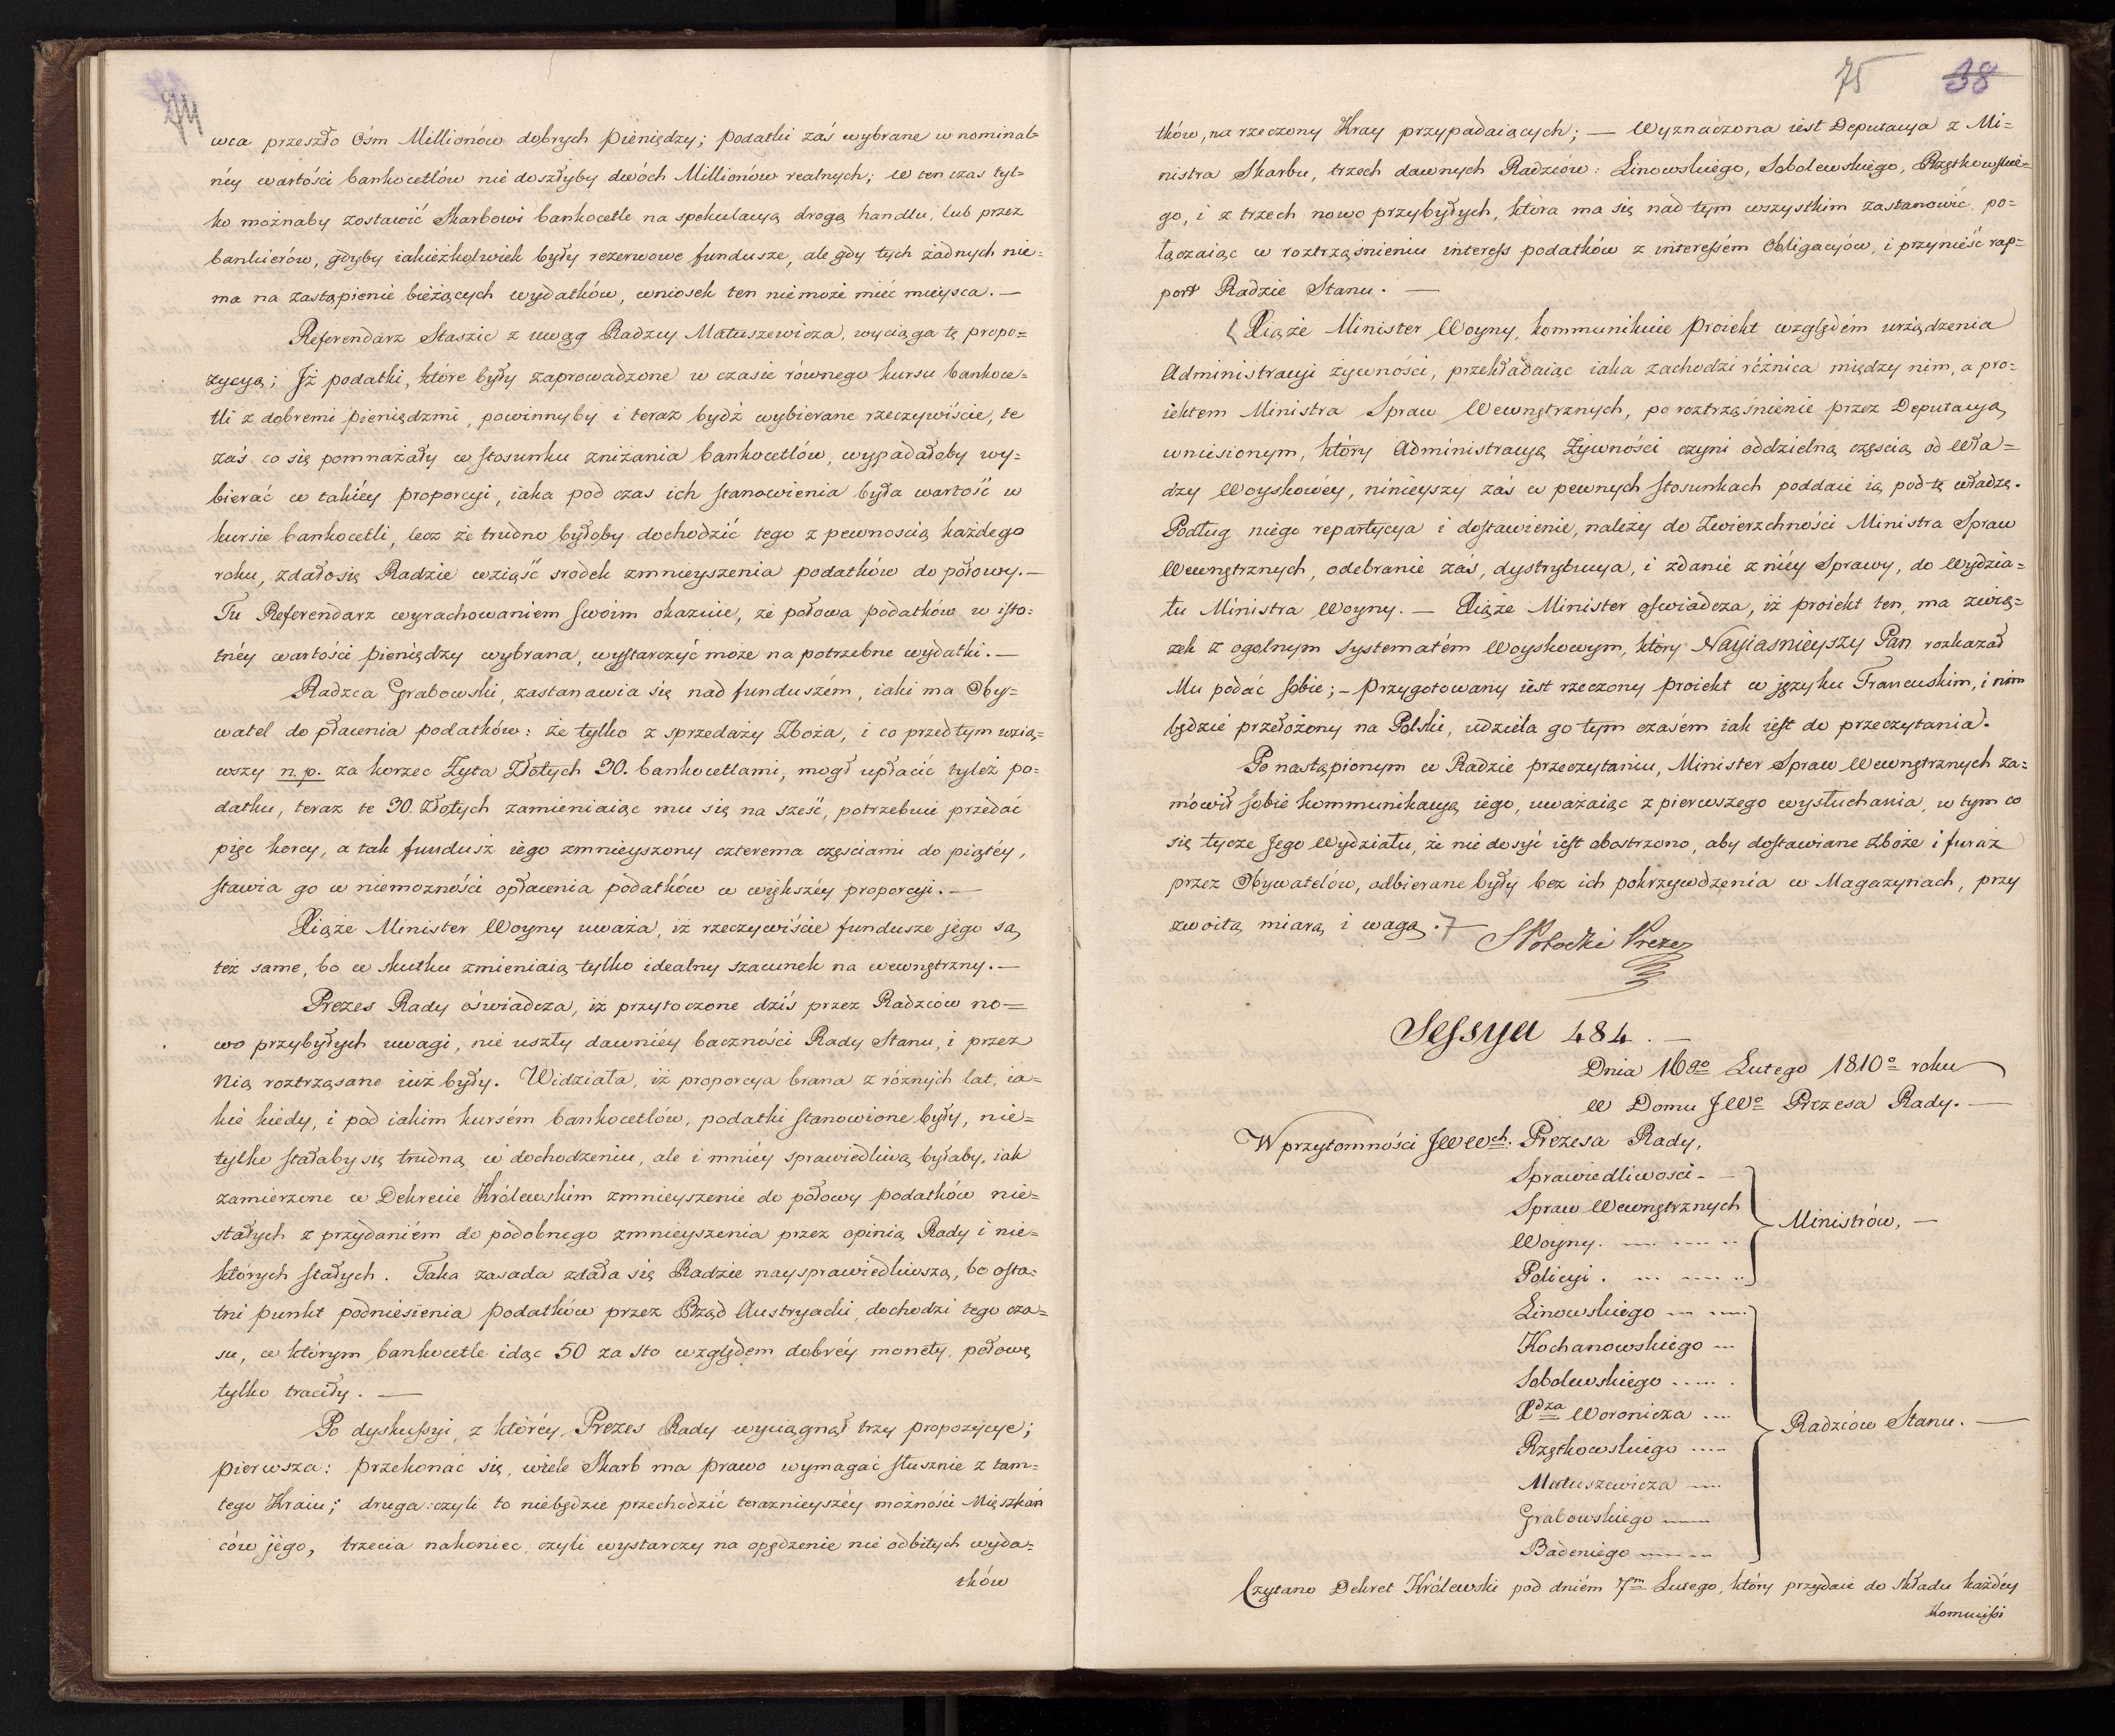 74
wca przeszło Ośm Millionów dobrych pieniędzy; podatki zaś wybrane w nominal=
néy wartości bankocetlów nie doszłyby dwóch Millionów realnych; w ten czas tyl=
ko możnaby zostawić Skarbowi bankocetle na spekulacyą drogą handlu, lub przez
bankierów, gdyby iakieżkolwiek były rezerwowe fundusze, ale gdy tych żadnych nie=
ma na zastąpienie bieżących wydatków, wniosek ten niemoże mieć mieysca. —
Referendarz Staszic z uwag Radzcy Matuszewicza, wyciąga tę propo=
zycyą; Iż podatki, które były zaprowadzone w czasie równego kursu bankoce=
tli z dobremi pieniędzmi, powinnyby i teraz bydź wybierane rzeczywiście, te
zaś co się pomnażały w stosunku zniżania bankocetlów, wypadałoby wy=
bierać w takiéy proporcyi, iaka pod czas ich stanowienia była wartość w
kursie bankocetli, lecz że trudno byłoby dochodzić tego z pewnoscią każdego
roku, zdałosię Radzie wziąść srodek zmnieyszenia podatków do połowy. —
Tu Referendarz wyrachowaniem swoim okazuie, że połowa podatków w isto=
tnéy wartości pieniędzy wybrana, wystarczyć może na potrzebne wydatki. —
Radzca Grabowski, zastanawia się nad funduszém, iaki ma Oby=
watel do płacenia podatków: że tylko z sprzedaży Zboża, i co przedtym wzią=
wszy n.p. za korzec Żyta Złotych 30. bankocetlami, mogł upłacić tyleż po=
datku, teraz te 30. Złotych zamieniaiąc mu się na sześć, potrzebuie przedać
pięc korcy, a tak fundusz iego zmnieyszony czterema częsciami do piątéy,
stawia go w niemożności opłacenia podatków w większéy proporcyi. —
Xiąże Minister Woyny uważa, iż rzeczywiście fundusze jego są
też same, bo w skutku zmieniaią tylko idealny szacunek na wewnętrzny. —
Prezes Rady oświadcza, iż przytoczone dziś przez Radzców no=
wo przybyłych uwagi, nie uszły dawniéy baczności Rady Stanu, i przez
Nią roztrząsane iuż były. Widziała, iż proporcya brana z różnych lat, ia=
kie kiedy, i pod iakim kursém bankocetlów, podatki stanowione były, nie=
tylko stałaby się trudną w dochodzeniu, ale i mniéy sprawiedliwą byłaby, iak
zamierzone w Dekrecie Królewskim zmnieyszenie do połowy podatków nie=
stałych z przydaniém do podobnego zmnieyszenia przez opinią Rady i nie=
których stałych. Taka zasada zdała się Radzie naysprawiedliwszą, bo osta=
tni punkt podniesienia podatków przez Rząd Austryacki, dochodzi tego cza=
su, w którym bankocetle idąc 50 za sto względem dobréy monéty, połowę
tylko traciły. —
Po dyskussyi, z któréy Prezes Rady wyciągnął trzy propozycye;
pierwsza: przekonać się, wiele Skarb ma prawo wymagać słusznie z tam=
tego Kraiu; druga: czyli to niebędzie przechodzić teraznieyszéy możności Mieszkań
ców jego, trzecia nakoniec, czyli wystarczy na opędzenie nie odbitych wyda=
tków
75 38
tków, na rzeczony Kray przypadaiących; — Wyznaczona iest Deputacya z Mi=
nistra Skarbu, trzech dawnych Radzców: Linowskiego, Sobolewskiego, Rzętkowskie=
go, i z trzech nowo przybyłych, która ma się nad tym wszystkim zastanowić, po=
łączaiąc w roztrząśnieniu interess podatków z interessém Obligacyów, i przynieść rap=
port Radzie Stanu. —
Xiąże Minister Woyny, kommunikuie proiekt względém urządzenia
Administracyi żywności, przekładaiąc iaka zachodzi różnica między nim, a pro=
iektem Ministra Spraw Wewnętrznych, po roztrząśnienie przez Deputacyą
wniesionym, który Administracyą Żywności czyni oddzielną częscią od Wła=
dzy Woyskowéy, ninieyszy zaś w pewnych stosunkach poddaie ią pod tę władzę.
Podług niego repartycya i dostawienie, należy do Zwierzchności Ministra Spraw
Wewnętrznych, odebranie zaś, dystrybucya, i zdanie z niéy Sprawy, do Wydzia=
łu Ministra Woyny. — Xiąże Minister oświadcza, iż proiekt ten, ma zwią=
zek z ogolnym systematém Woyskowym, który Nayiasnieyszy Pan rozkazał
Mu podać sobie; — Przygotowany iest rzeczony proiekt w języku Francuskim, i nim
będzie przełożony na Polski, udziela go tym czasém iak iest do przeczytania.
Po nastąpionym w Radzie przeczytaniu, Minister Spraw Wewnętrznych za=
mówił sobie kommunikacyą iego, uważaiąc z pierwszego wysłuchania, w tym co
się tycze Jego Wydziału, że nie dosyć iest obostrzono, aby dostawiane Zboże i furaż
przez Obywatelów, odbierane były bez ich pokrzywdzenia w Magazynach, przy
zwoitą miarą i wagą. —
SPotocki Prezes
Sessya 484. —
Dnia 16go Lutego 1810o roku
W Domu JWo Prezesa Rady. —
W przytomności JWWch. Prezesa Rady,
Sprawiedliwości
Spraw Wewnętrznych
Woyny.
Policyi.
Ministrów, —
Linowskiego
Kochanowskiego
Sobolewskiego
Xdza Woronicza
Rzętkowskiego
Matuszewicza
Grabowskiego
Badeniego
Radzców Stanu. —
Czytano Dekret Królewski pod dniém 7m Lutego, który przydaie do składu każdéy
Kommissi